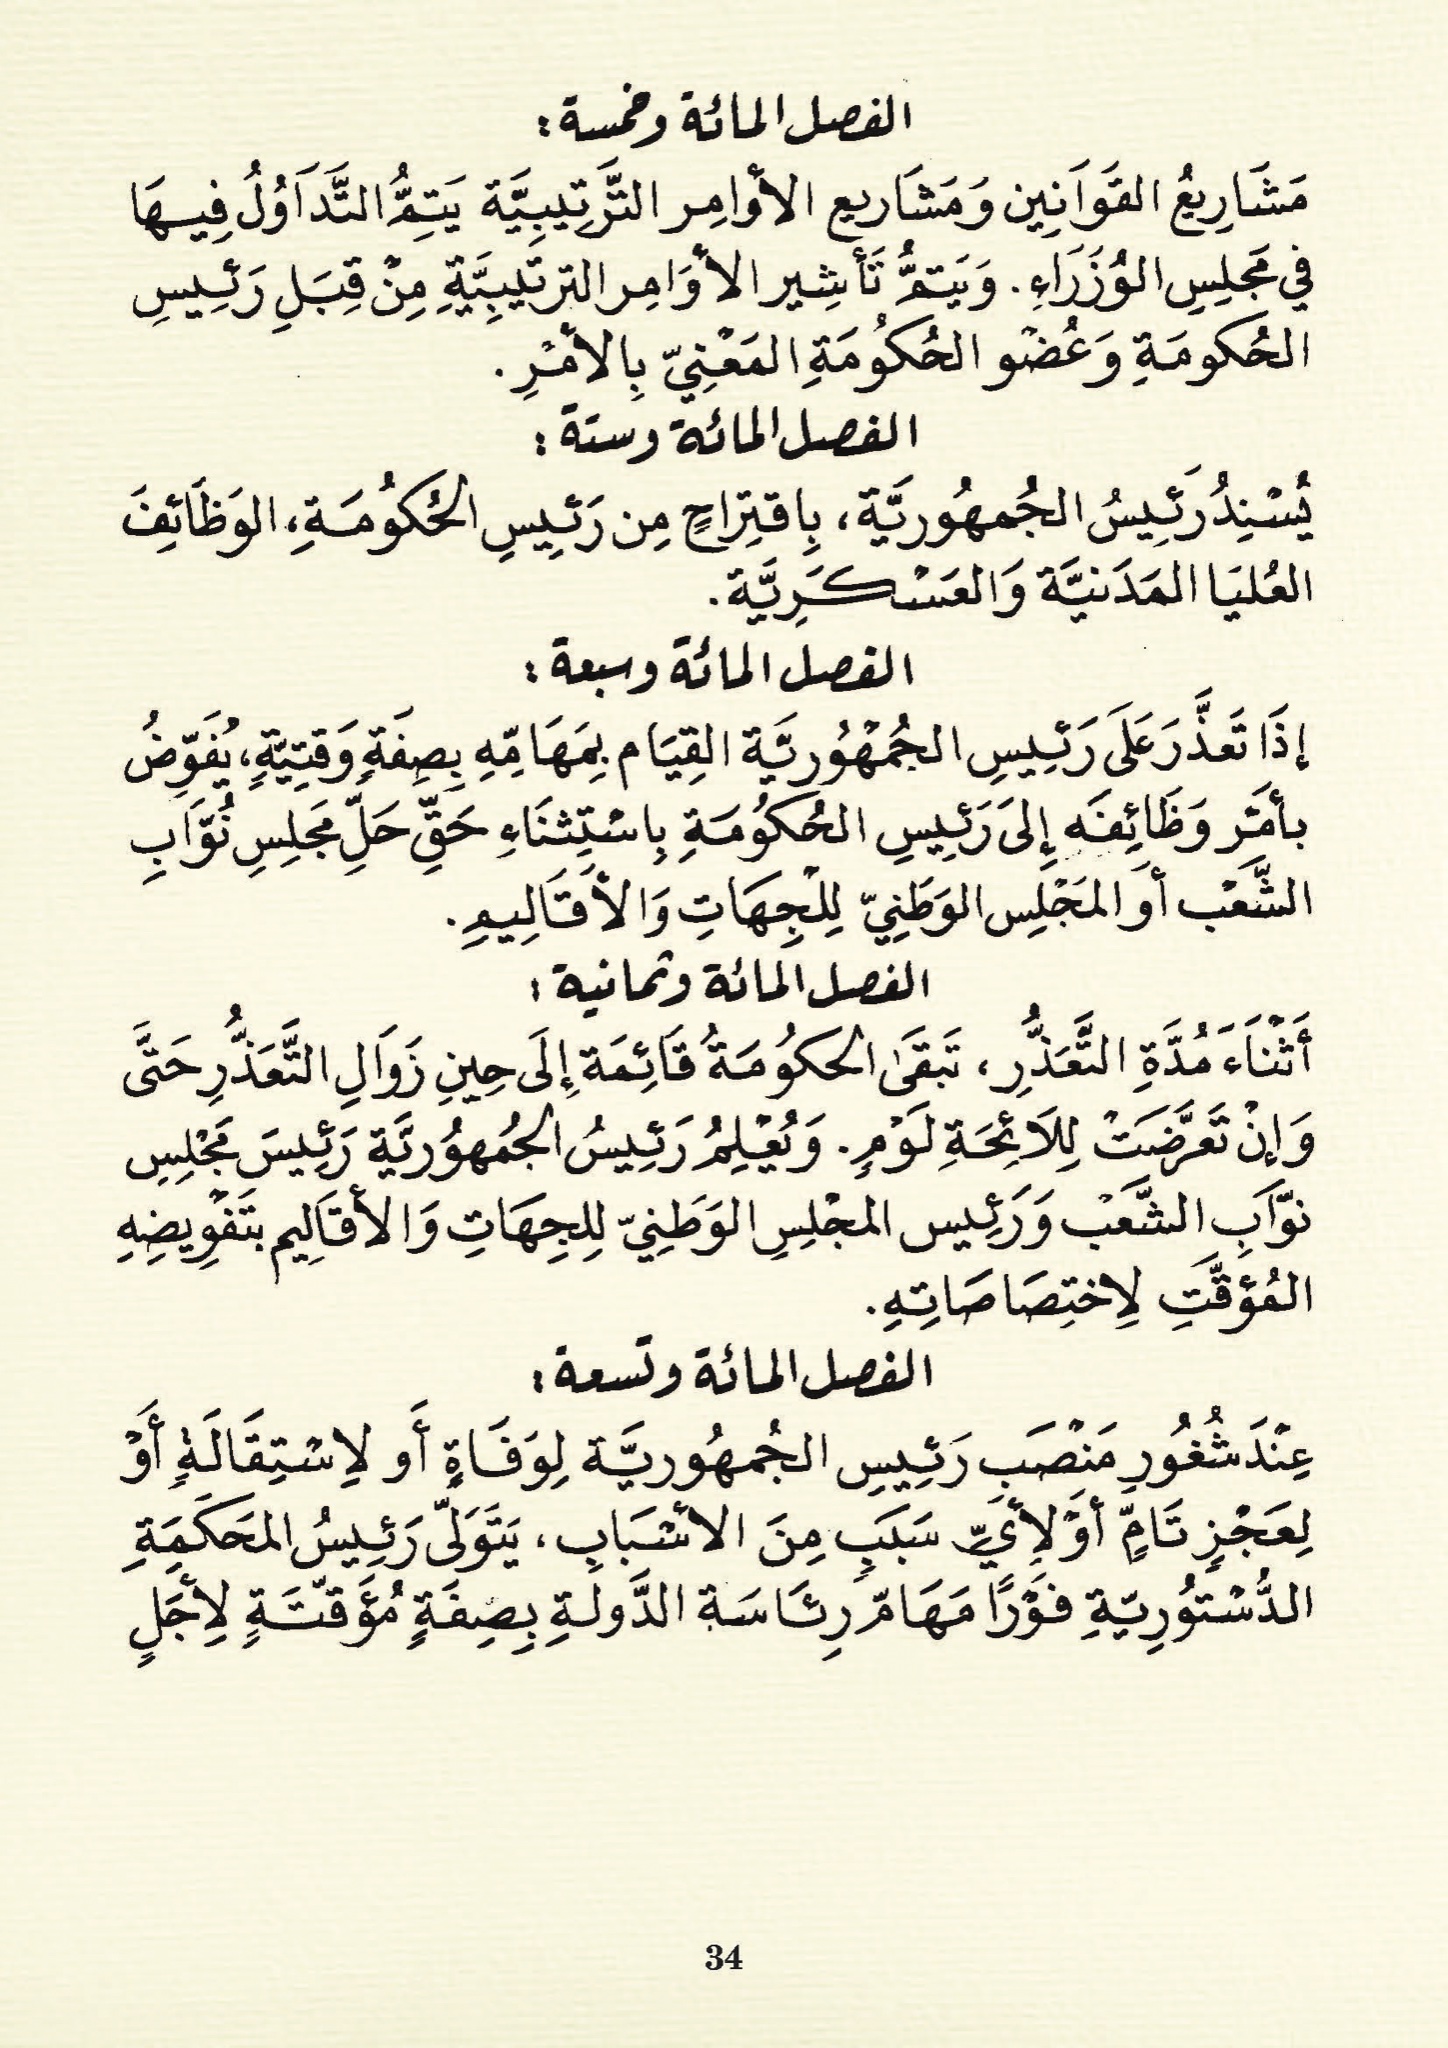 الفصل المائة وخمسة :
مَشَارِيعُ القَوَانِين وَمَشَاريع الأوامِر التَّرتِيبِيَّة يَتِمُّ التَّدَاوُلُ فِيهَا
في مَجلِسِ الوُزَرَاءِ. وَيَتمُّ تَأشِير الأوَامِر الترتَيبِيَّةِ مِنْ قِبَلِ رَئِيسِ
الحُكومَةِ وَعُضْو الحُكُومَةِ المَعْنِيّ بِالأمْرِ.
الفصل المائة وستة :
يُسْنِدُ رَئِيسُ الجُمهُوريَّة، بِاقتِرَاحٍ مِن رَئِيسِ الحُكُومَةِ، الوَظَائِفَ
العُليَا المَدَنيَّة وَالعَسْكَرِيَّة.
الفصل المائة وسبعة :
إذَا تَعذَّرَ عَلَى رَئِيسِ الجُمْهُوريَّة القِيَام بِمَهَامِّهِ بِصِفَةٍ وَقتِيَّةٍ، يُفَوِّضُ
بأمْر وَظَائِفَه إِلىَ رَئِيسِ الحُكُومَةِ بِاسْتِثنَاءِ حَقِّ حَلِّ مَجلِسِ نُوَّابِ
الشَّعْب أو المَجْلِس الوَطَنِيّ لِلْجِهَاتِ وَالأقَالِيمِ.
الفصل المائة وثمانية :
أَثْنَاءَ مُدَّةِ التَّعَذُّرِ، تَبقَى الحكُومَةُ قَائِمَة إِلَى حِينِ زَوَالِ التَّعَذُّرِ حَتَّى
وَإنْ تَعَرَّضَتْ لِلاَئِحَةِ لَوْمٍ. وَيُعْلِمُ رَئِيسُ الجُمهُوريَّة رَئِيسَ مَجْلِسِ
نوَّابِ الشَّعَب وَرَئِيس المجْلِسِ الوَطَنِيّ لِلجِهَاتِ وَالأقَالِيم بتَفْوِيضِهِ
المُؤقَّتِ لِاختِصَاصَاتِهِ.
الفصل المائة وتسعة :
عِنْدَ شُغُورِ مَنْصَبِ رَئِيسِ الجُمهُوريَّة لِوَفَاةٍ أَو لِاسْتِقَالَةٍ أَوْ
لِعَجْزٍ تَامٍّ أوْ لأيِّ سَبَبٍ مِنَ الأسْبَابِ، يَتَوَلَّى رَئِيسُ المَحكَمَةِ
الدُّسْتُورِيّةِ فوْرًا مَهَامّ رِئَاسَة الدَّولةِ بِصِفَةٍ مُؤَقتّةٍ لِأجَلٍ
34